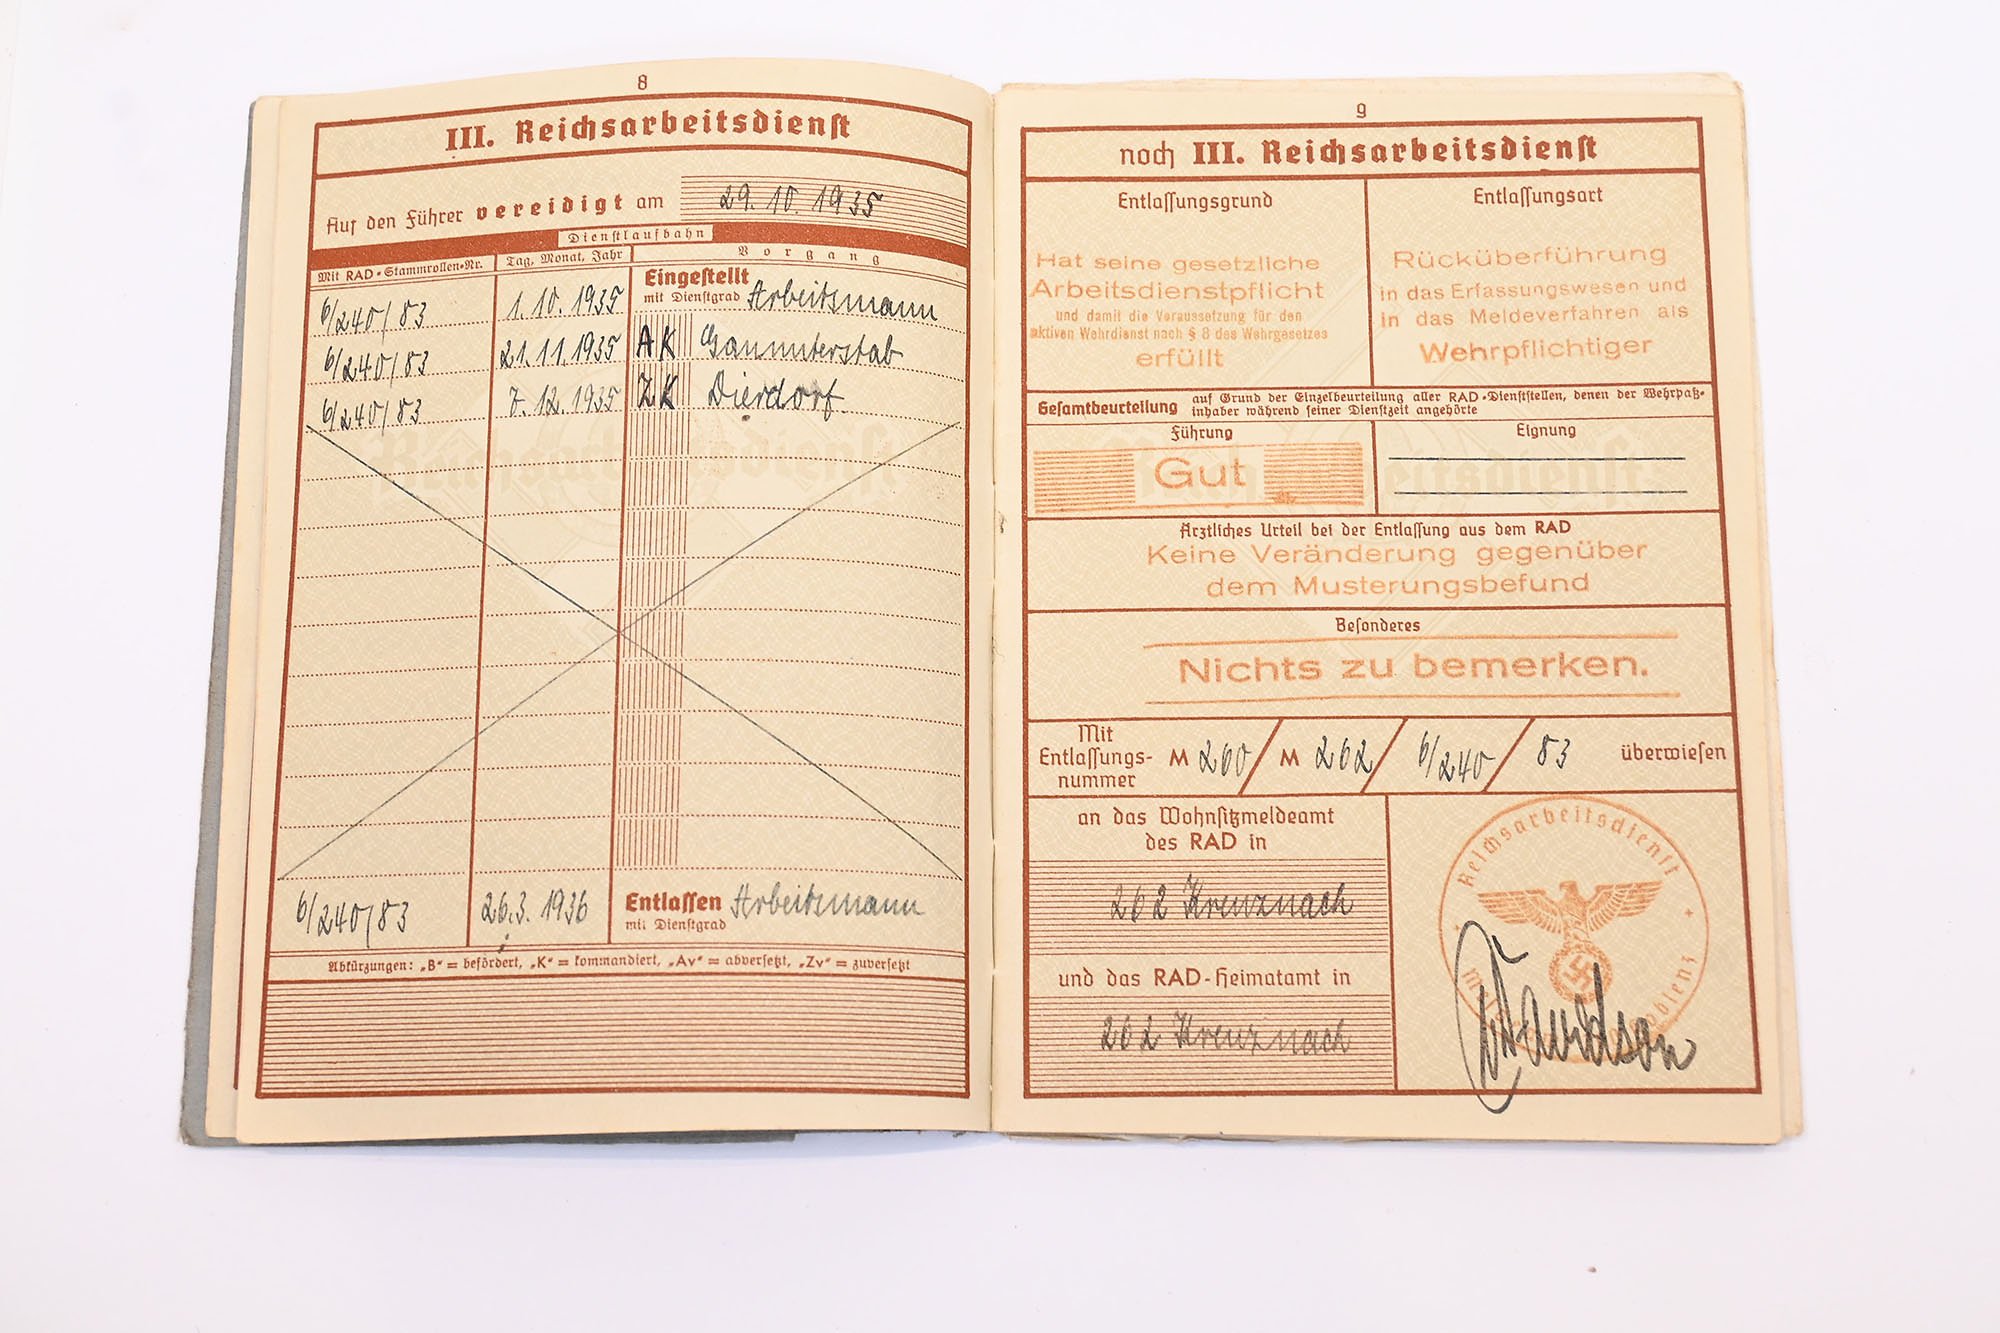 8
III. Reichsarbeitsdienst
Auf den Führer vereidigt am 29. 10. 1935
Dienstlaufbahn
Mit RAD-Stammrollen-Nr. Tag, Monat, Jahr Vorgang
6/240/83 1. 10. 1935 Eingestellt mit Dienstgrad Arbeitsmann
6/240/83 21. 11. 1935 AK Gaumusterstab
6/240/83 7. 12. 1935 ZK Dierdorf
Reichsarbeitsdienst
6/240/83 26. 3. 1936 Entlassen mit Dienstgrad Arbeitsmann
Abkürzungen: „B“ = befördert, „K“ = kommandiert, „Av“ = abversetzt, „Zv“ = zuversetzt
9
noch III. Reichsarbeitsdienst
Entlassungsgrund
Hat seine gesetzliche
Arbeitsdienstpflicht
und damit die Voraussetzung für den
aktiven Wehrdienst nach § 8 des Wehrgesetzes
erfüllt
Entlassungsart
Rücküberführung
in das Erfassungswesen und
in das Meldeverfahren als
Wehrpflichtiger
Gesamtbeurteilung auf Grund der Einzelbeurteilung aller RAD-Dienststellen, denen der Wehrpaß-
inhaber während seiner Dienstzeit angehörte
Führung
Gut
Eignung
Reichsarbeitsdienst
Ärztliches Urteil bei der Entlassung aus dem RAD
Keine Veränderung gegenüber
dem Musterungsbefund
Besonderes
Nichts zu bemerken.
Mit
Entlassungs-
nummer
M 260 / M 262 / 6/240 / 83 überwiesen
an das Wohnsitzmeldeamt
des RAD in
262 Kreuznach
und das RAD-Heimatamt in
262 Kreuznach
Reichsarbeitsdienst